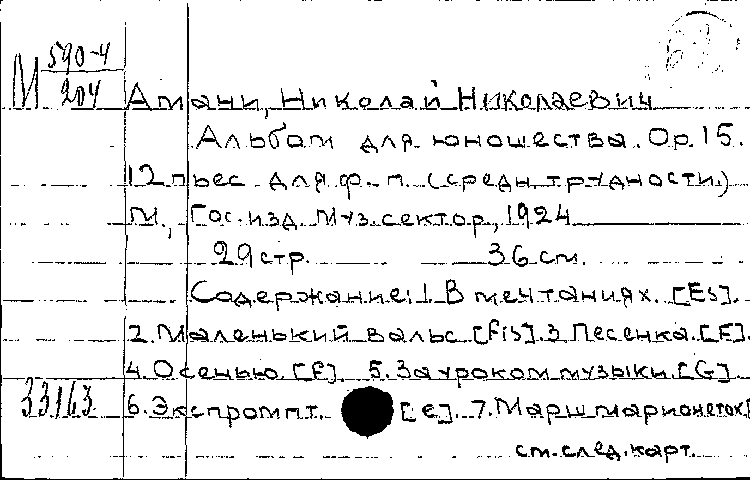 М 590-4
204
Амани, Николай Николаевич
Альбом для юношества. Ор. 15.
12 пьес для ф.-п. (средн. трудности.)
М., Гос. изд. Муз. сектор, 1924
29 стр. 36 см.
Содержание: 1. В мечтаниях. [Es].
2. Маленький вальс [fis]. 3. Песенка. [E].
4. Осенью. [f] 5. За уроком музыки. [G]
33163 6. Экспромпт. [e]. 7. Марш марионеток [
см. след. карт.